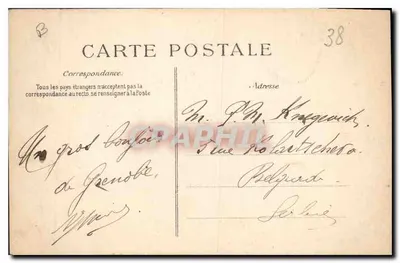 B
38
CARTE POSTALE
Correspondance.
Tous les pays étrangers n'acceptent pas la
correspondance au recto, se renseigner à la Poste
Adresse
Un gros bonjour
de Grenoble.
M. P. M. Knegevich
rue
Belgrade
Serbie
CARTAGRAPHILIE